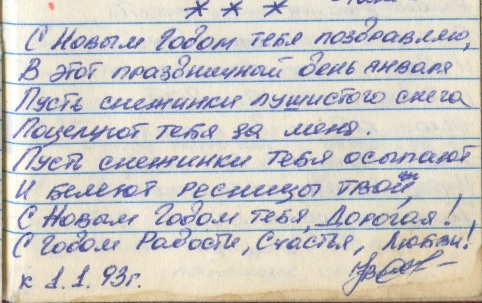 * * *
С Новым Годом тебя поздравляю,
В этот праздничный день января
Пусть снежинки пушистого снега
Поцелуют тебя за меня.
Пусть снежинки тебя осыпают
И белеют ресницы твои,
С Новым Годом тебя, Дорогая!
С Годом Радости, Счастья, Любви!
к 1.1.93г.